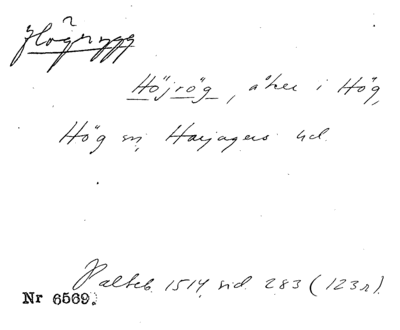 Högrygg
Höjrög, åker i Hög,
Hög sn, Harjagers hd.
Palteb. 1514, sid. 283 (123r).
Nr 6569.